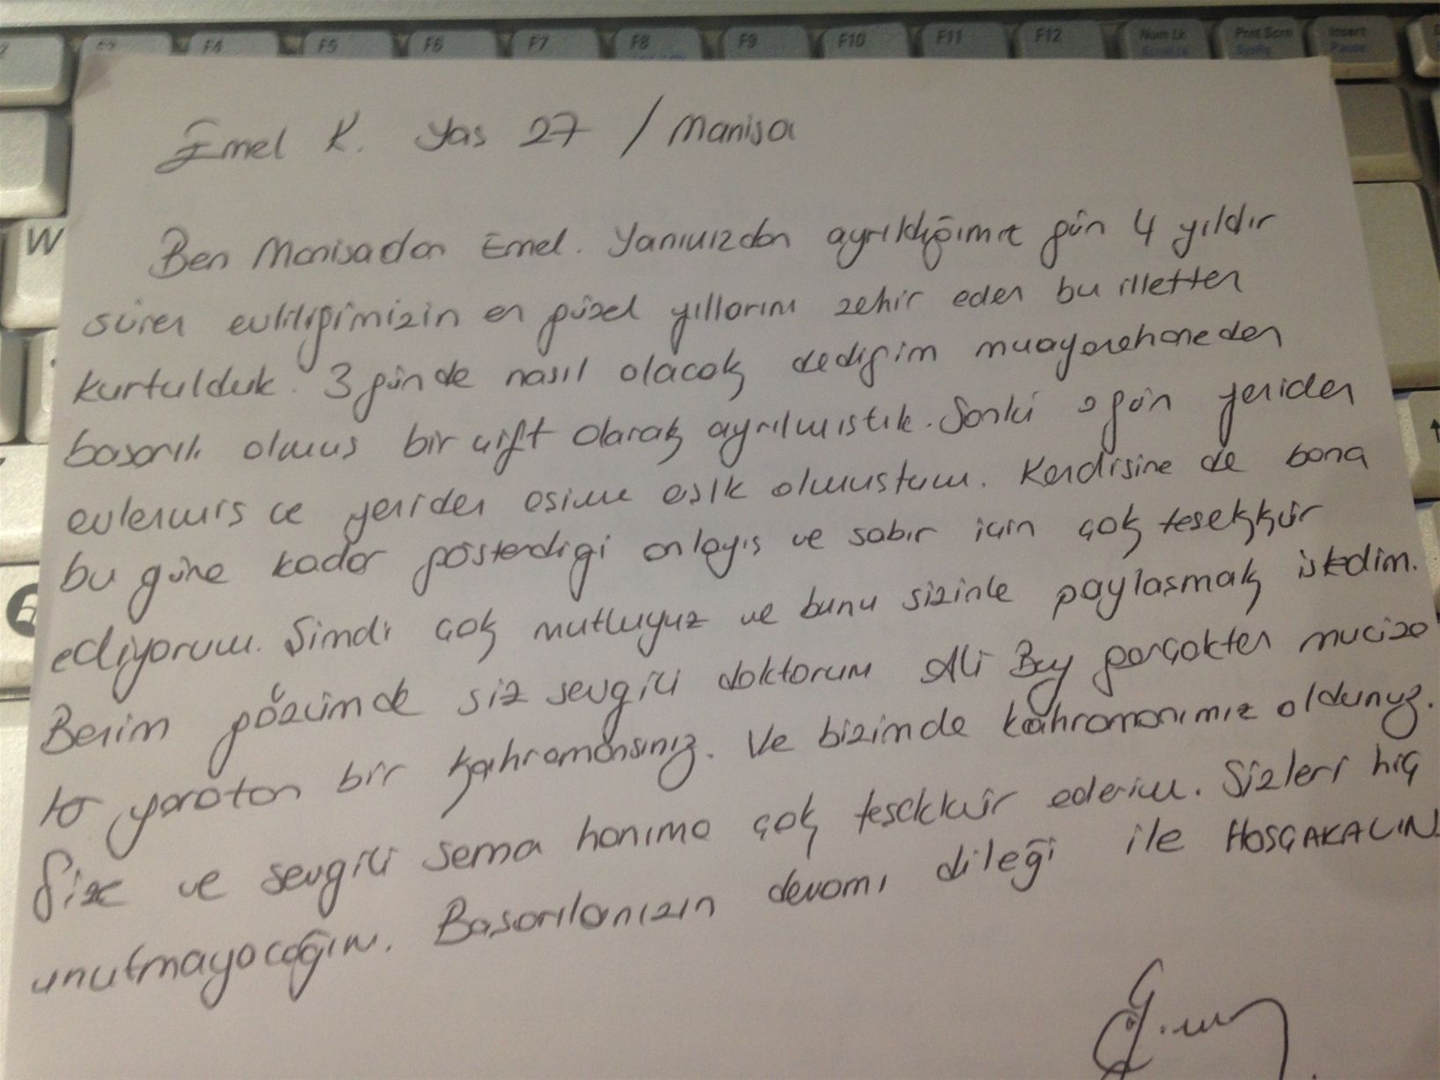 F4 F5 F6 F7 F8 F9 F10 F11 F12 Num Lk Prnt Scrn Insert
ScrollLk SysRq Pause
Emel K. Yas 27 / Manisa
W
Ben Manisadan Emel. Yanınızdan ayrıldığımız gün 4 yıldır
süren evliligimizin en güzel yıllarını zehir eden bu illetten
kurtulduk. 3 günde nasıl olacak dedigim muayenehaneden
basarılı olmus bir çift olarak ayrılmıstık. Sanki o gün yeniden
evlenmis ve yeniden esime asık olmustum. Kendisine de bana
bu güne kadar gösterdigi anlayıs ve sabır için çok tesekkür
ediyorum. Simdi çok mutluyuz ve bunu sizinle paylasmak istedim.
Benim gözümde siz sevgili doktorum Ali Bey gerçekten mucize
ler yaratan bir kahramansınız. Ve bizimde kahramanımız oldunuz.
Size ve sevgili Sema hanıma çok tesekkür ederim. Sizleri hiç
unutmayacağım. Basarılarınızın devamı dileği ile HOSÇAKALIN